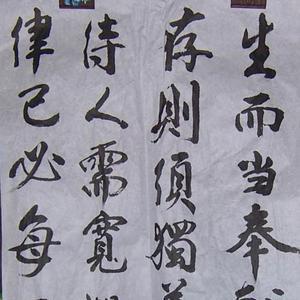 生而当奉
存则须獨
待人需寬
律己必每